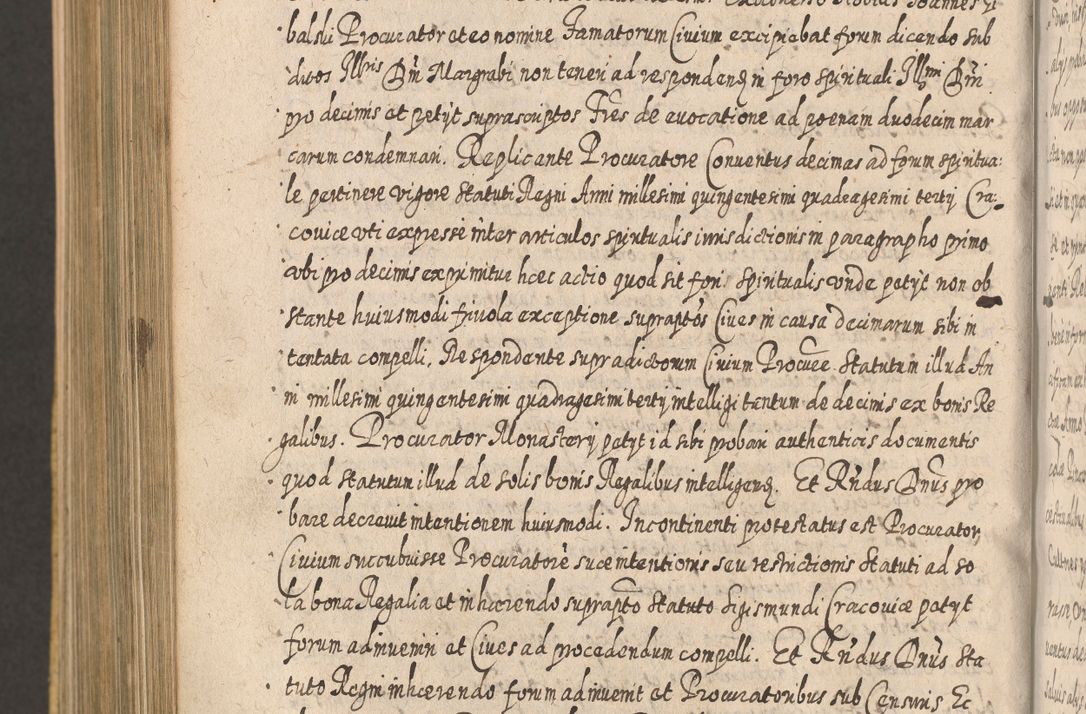 balski Procurator et eo nomine Famatorum Civium excipiebat forum dicendo sub
ditos Illris Dni Margrabi non teneri ad respondendum in foro spirituali Illmi Dni
pro decimis et petijt suprascriptos Fres de evocatione ad poenam duodecim mar
carum condemnari. Replicante Procuratore Conventus decimas ad forum spiritua:
le pertinere vigore Statuti Regni Anni millesimi quingentesimi quadragesimi tertij Cra:
coviæ uti expresse inter articulos spiritualis iurisdictionis in paragrapho primo
ubi pro decimis exprimitur hæc actio quod sit fori spiritualis unde petijt non ob
stante huiusmodi frivola exceptione supraptos Cives in causa decimarum sibi in
tentata compelli. Respondente supradictorum Civium Procure Statutum illud An
ni millesimi quingentesimi quadragesimi tertij intelligi tantum de decimis ex bonis Re
galibus. Procurator Monasterij petijt id sibi probari authenticis documentis
quod Statutum illud de solis bonis Regalibus intelligeretur. Et Rndus Dnus pro
bare decrevit intentionem huiusmodi. Incontinenti protestatus est Procurator,
Civium succubuisse Procuratore suæ intentionis seu restrictionis Statuti ad so
la bona Regalia et inhærendo suprapto Statuto Sigismundi Cracoviæ petijt
forum adinveniri et Cives ad procedendum compelli. Et Rndus Dnus Sta
tuto Regni inhærendo forum adinvenit et Procuratoribus sub Censuris Ec